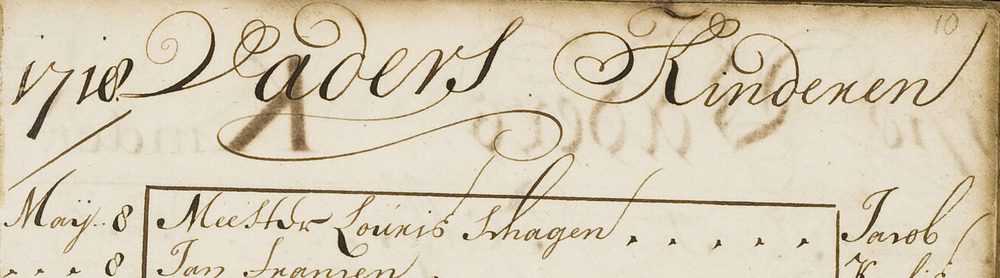 10
1718 Vaders Kinderen
Maÿ. 8 Meester Louris Schagen . . . . . Jacob
. . . 8 Jan Fransen .